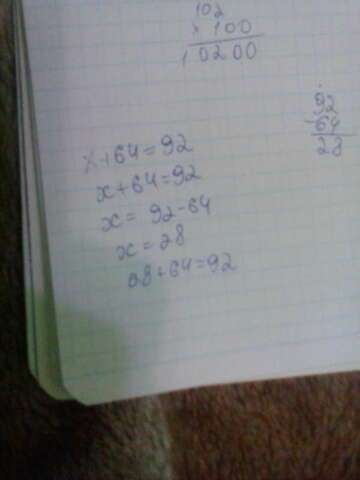 102
× 100
10200
x+64=92
x+64=92
x= 92-64
x=28
28+64=92
92
-64
28